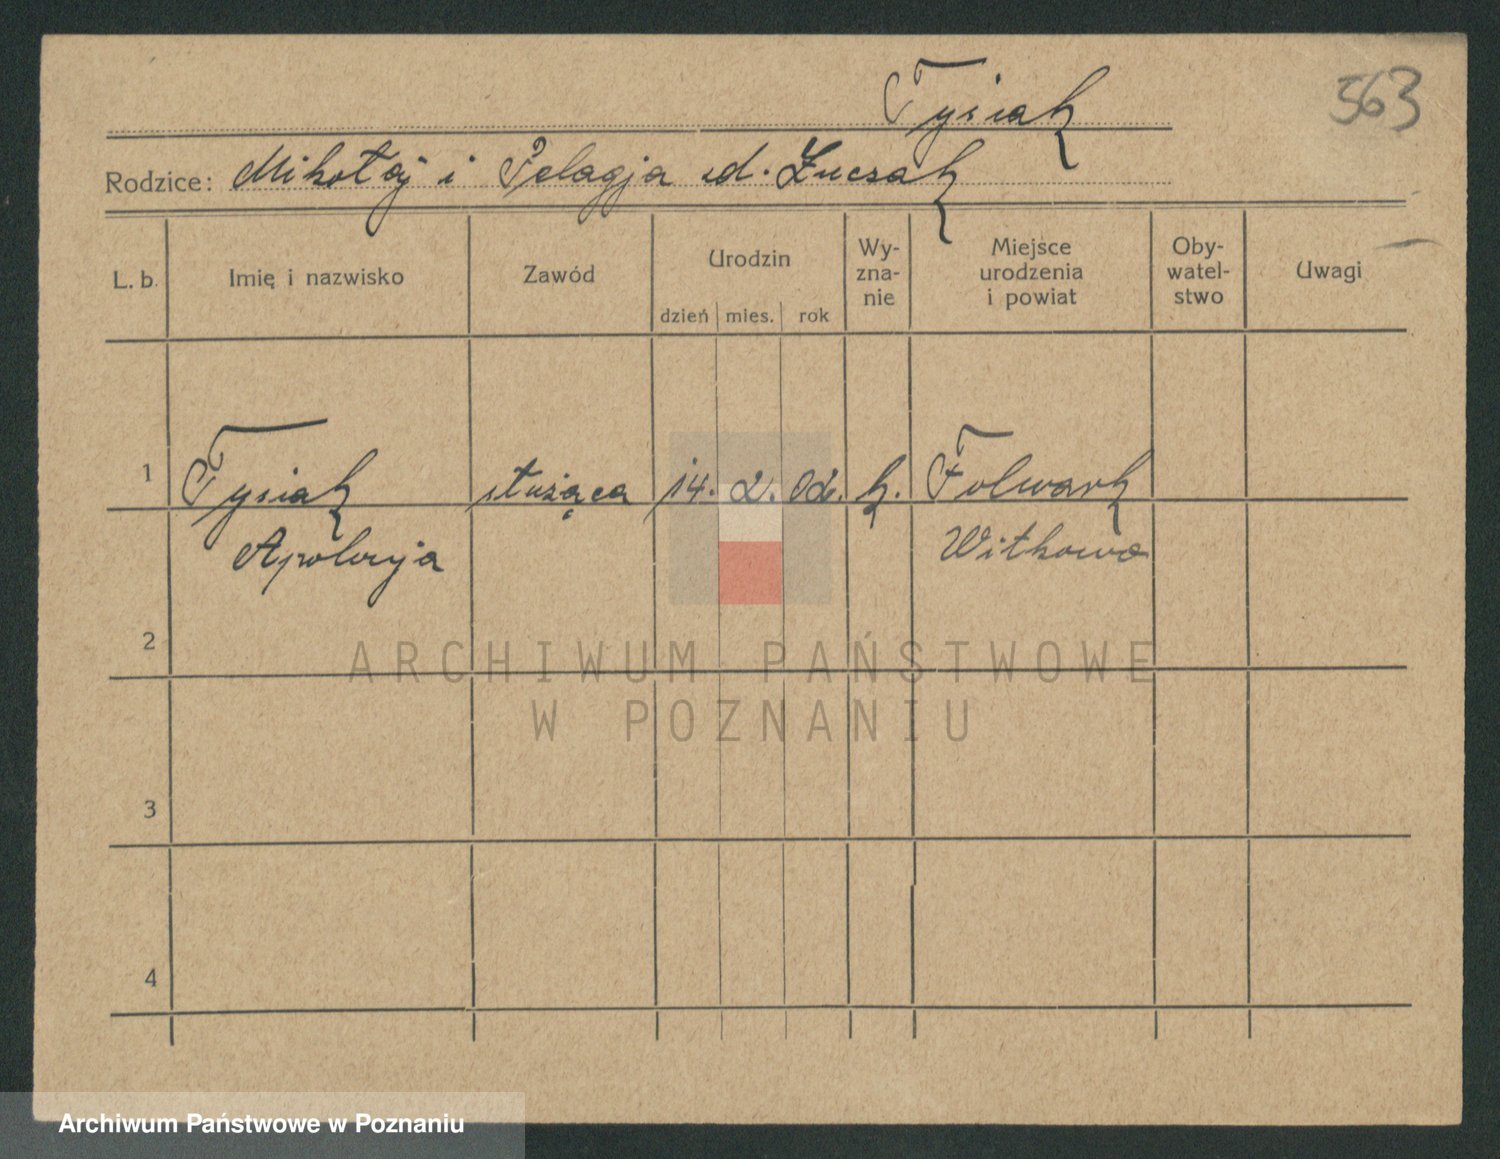 Tysiak
563
Rodzice: Mikołaj i Pelagja zd. Łuczak
L. b.
Imię i nazwisko
Zawód
Urodzin
dzień mies. rok
Wy-
zna-
nie
Miejsce
urodzenia
i powiat
Oby-
watel-
stwo
Uwagi
1 Tysiak służąca 14. 2. 02. k. Folwark
Apolonja Witkowo
2
3
4
ARCHIWUM PAŃSTWOWE
W POZNANIU
Archiwum Państwowe w Poznaniu